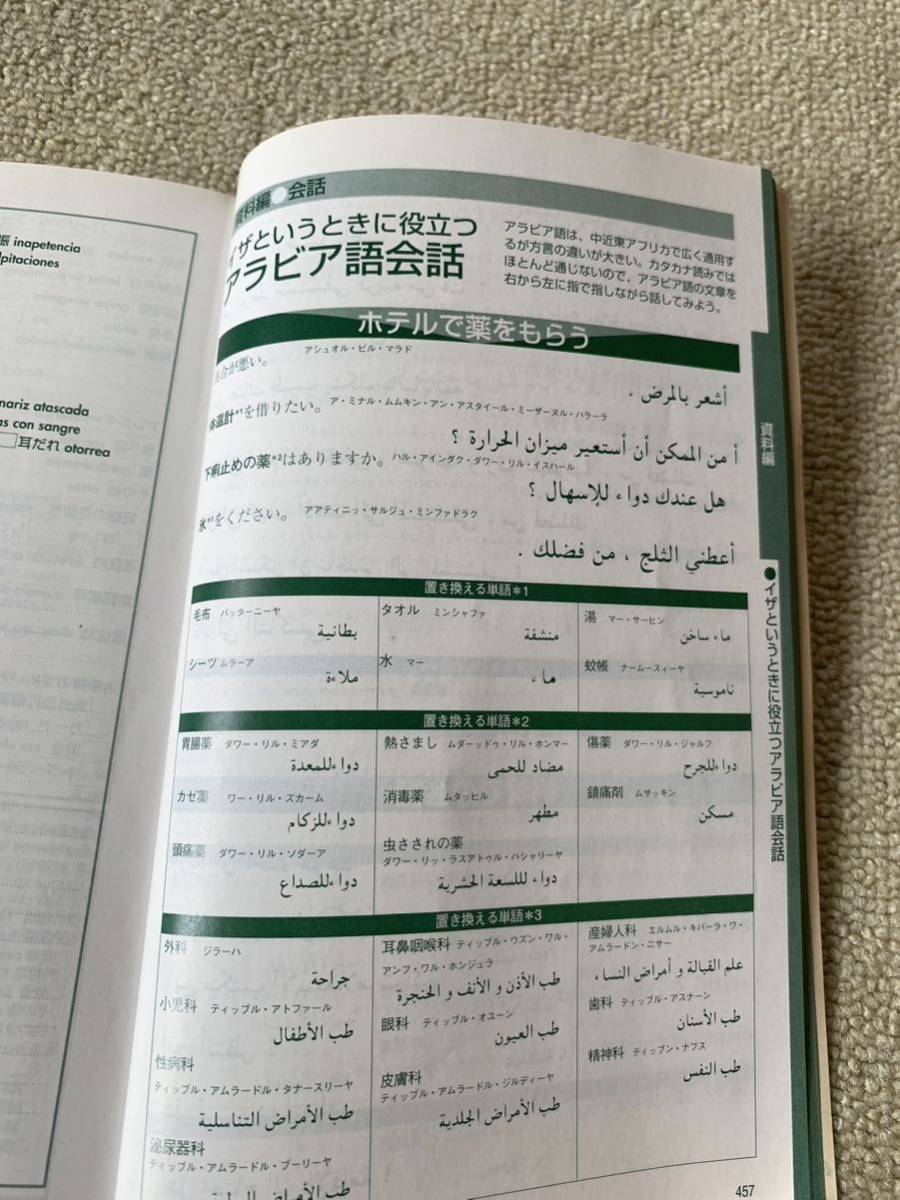 振 inapetencia
lpitaciones
nariz atascada
as con sangre
耳だれ otorrea
資料編●会話
イザというときに役立つ
アラビア語会話
アラビア語は、中近東アフリカで広く通用す
るが方言の違いが大きい。カタカナ読みでは
ほとんど通じないので、アラビア語の文章を
右から左に指で指しながら話してみよう。
ホテルで薬をもらう
具合が悪い。 アシュオル・ビル・マラド
أشعر بالمرض .
体温計*¹を借りたい。 ア・ミナル・ムムキン・アン・アスタイール・ミーザーヌル・ハラーラ
أ من الممكن أن أستعير ميزان الحرارة ؟
下痢止めの薬*²はありますか。 ハル・アインダク・ダワー・リル・イスハール
هل عندك دواء للإسهال ؟
氷*¹をください。 アアティニッ・サルジュ・ミンファドラク
أعطني الثلج ، من فضلك .
置き換える単語*1
毛布 バッターニーヤ
بطانية
タオル ミンシャファ
منشفة
湯 マー・サーヒン
ماء ساخن
シーツ ムラーア
ملاءة
水 マー
ماء
蚊帳 ナームースィーヤ
ناموسية
置き換える単語*2
胃腸薬 ダワー・リル・ミアダ
دواء للمعدة
熱さまし ムダーッドゥ・リル・ホンマー
مضاد للحمى
傷薬 ダワー・リル・ジャルフ
دواء للجرح
カゼ薬 ワー・リル・ズカーム
دواء للزكام
消毒薬 ムタッヒル
مطهر
鎮痛剤 ムサッキン
مسكن
頭痛薬 ダワー・リル・ソダーア
دواء للصداع
虫さされの薬
ダワー・リッ・ラスアトゥル・ハシャリーヤ
دواء للسعة الحشرية
置き換える単語*3
外科 ジラーハ
جراحة
耳鼻咽喉科 ティッブル・ウズン・ワル・
アンフ・ワル・ホンジュラ
طب الأذن و الأنف و الحنجرة
産婦人科 エルムル・キバーラ・ワ・
アムラードン・ニサー
علم القبالة و أمراض النساء
小児科 ティッブル・アトファール
طب الأطفال
眼科 ティッブル・オユーン
طب العيون
歯科 ティッブル・アスナーン
طب الأسنان
性病科
ティッブル・アムラードル・タナースリーヤ
طب الأمراض التناسلية
皮膚科
ティッブル・アムラードル・ジルディーヤ
طب الأمراض الجلدية
精神科 ティッブン・ナフス
طب النفس
泌尿器科
ティッブル・アムラードル・ブーリーヤ
طب الأمراض
資料編
●イザというときに役立つアラビア語会話
457